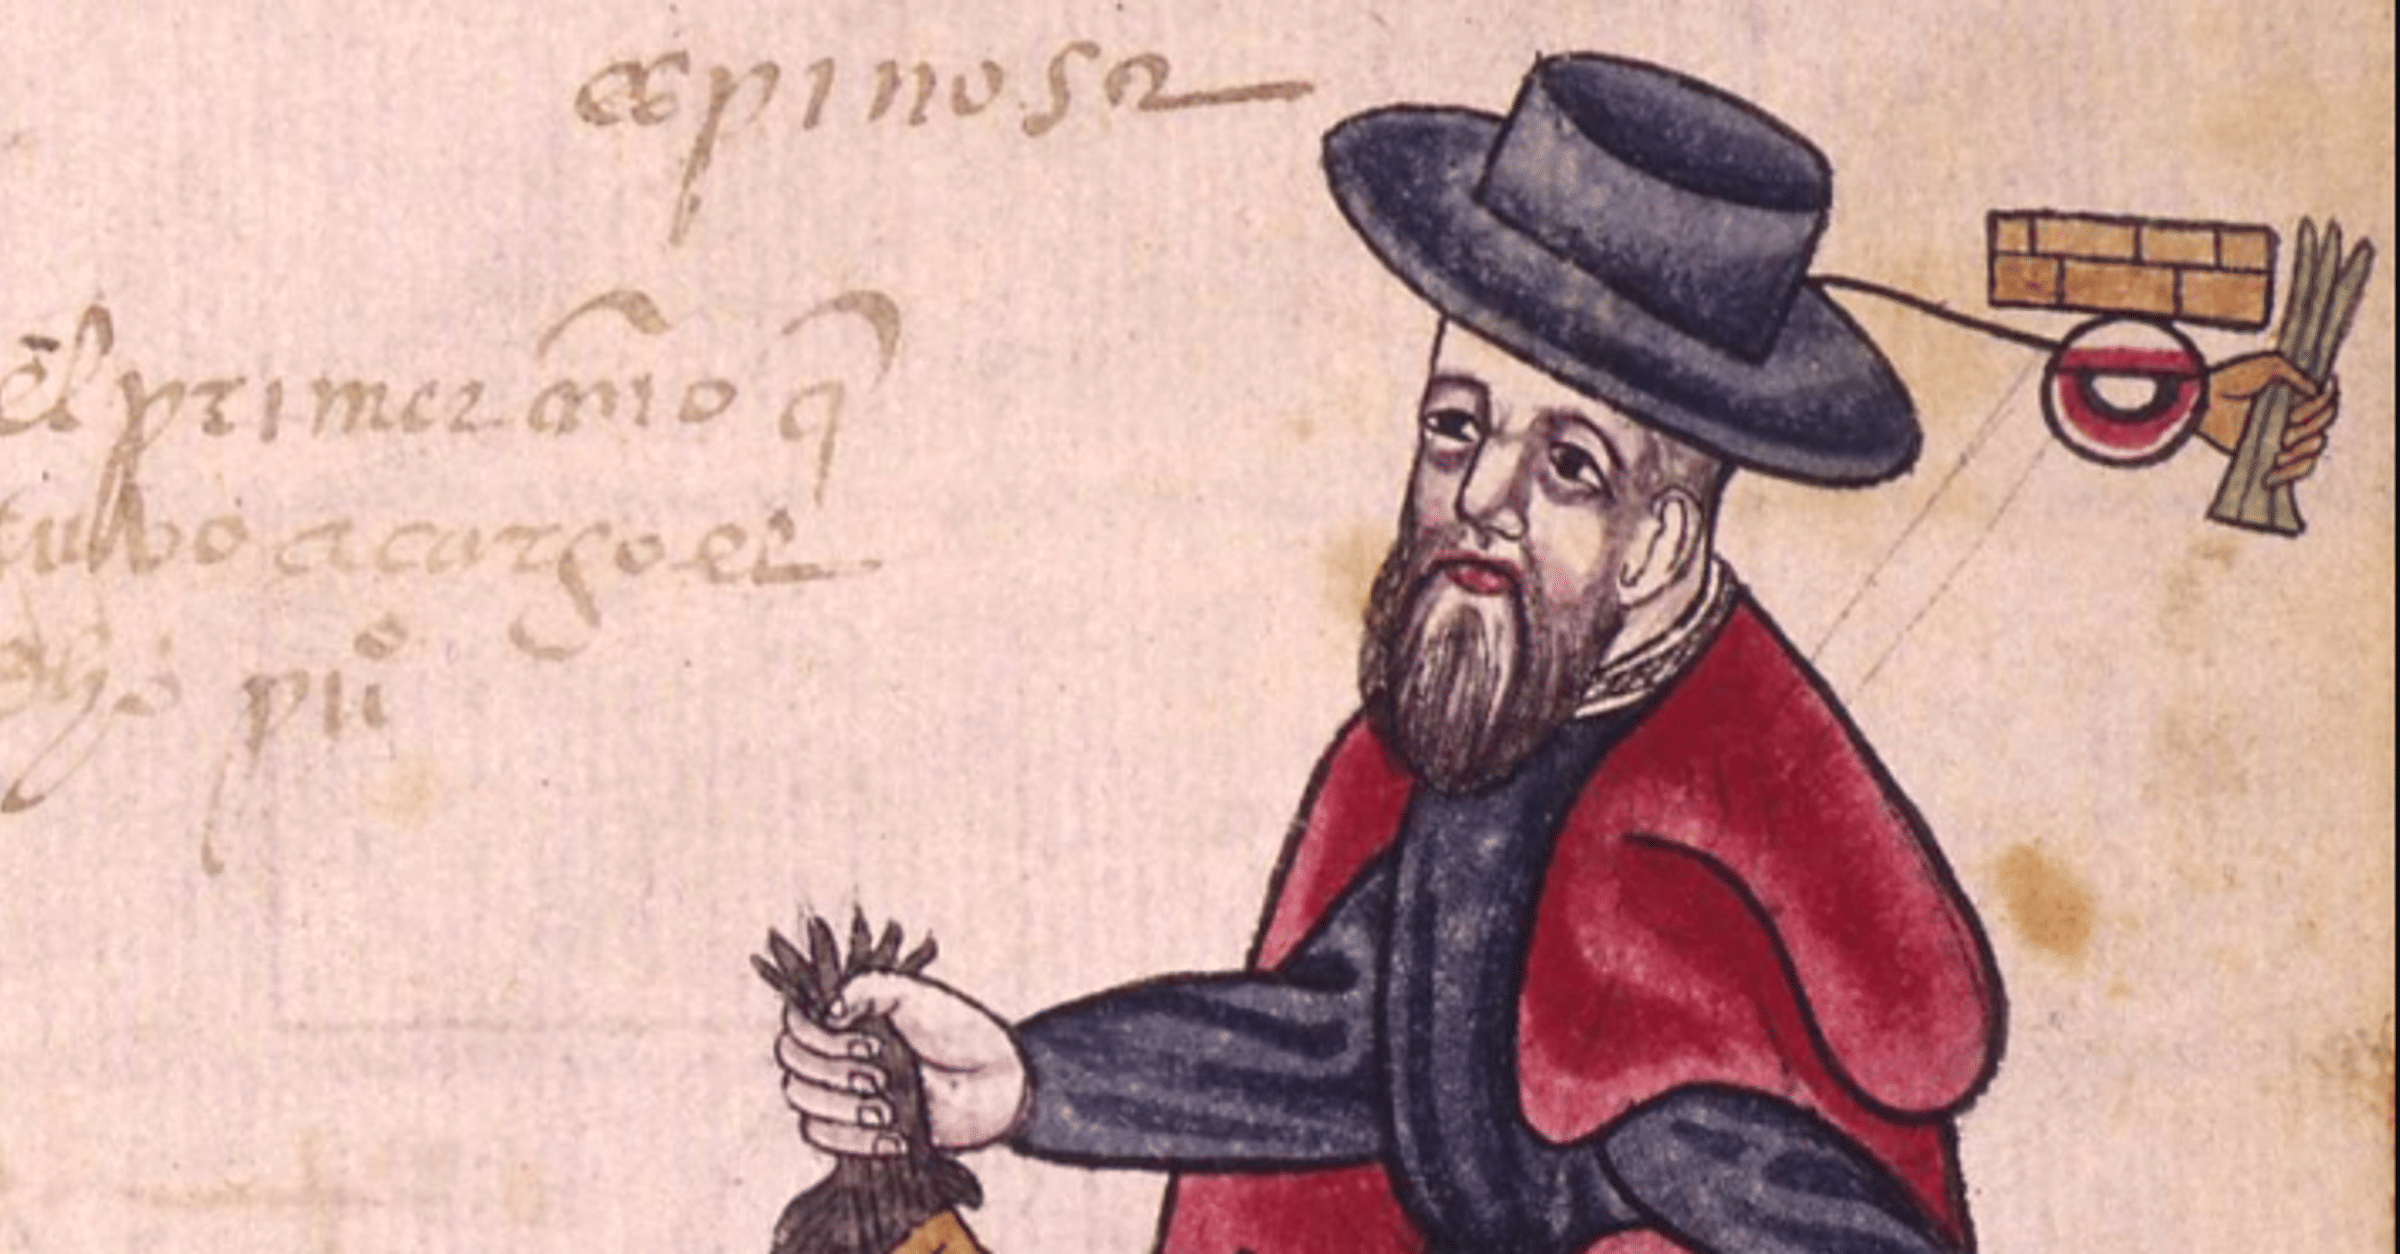 espinosa
El primer año q
tubo a cargo el
dho pu°